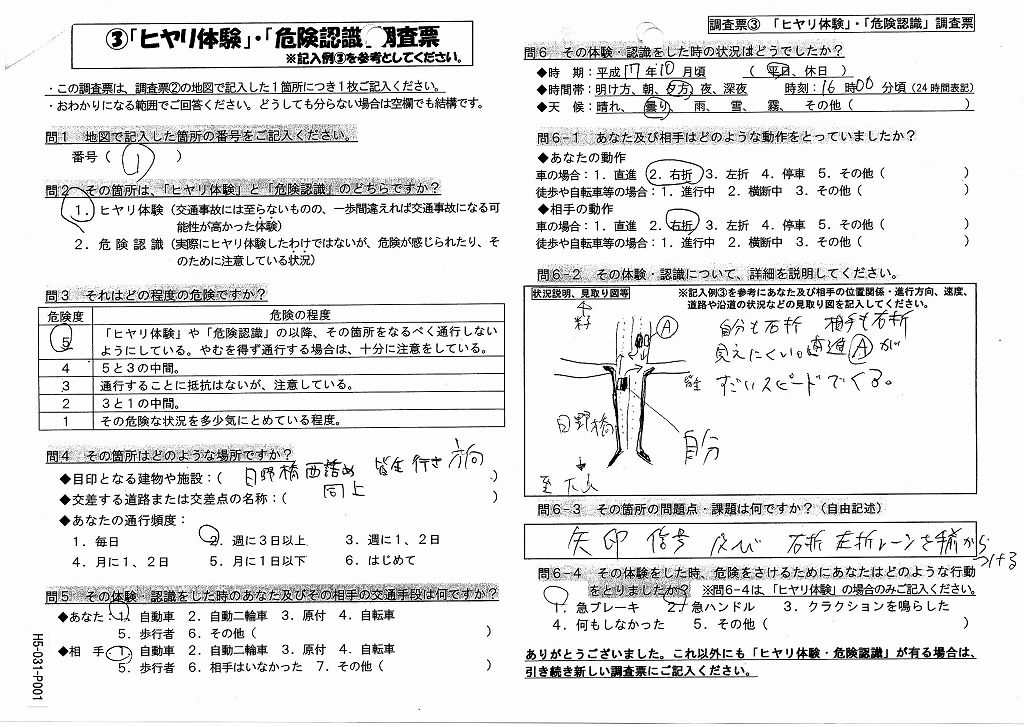 ③「ヒヤリ体験」・「危険認識」調査票
※記入例③を参考としてください。
・この調査票は、調査票②の地図で記入した１箇所につき１枚ご記入ください。
・おわかりになる範囲でご回答ください。どうしても分らない場合は空欄でも結構です。
問１　地図で記入した箇所の番号をご記入ください。
番号（　1　）
問２　その箇所は、「ヒヤリ体験」と「危険認識」のどちらですか？
１．ヒヤリ体験（交通事故には至らないものの、一歩間違えれば交通事故になる可
能性が高かった体験）
２．危険認識（実際にヒヤリ体験したわけではないが、危険が感じられたり、そ
のために注意している状況）
問３　それはどの程度の危険ですか？
危険度　危険の程度
５　「ヒヤリ体験」や「危険認識」の以降、その箇所をなるべく通行しない
ようにしている。やむを得ず通行する場合は、十分に注意をしている。
４　５と３の中間。
３　通行することに抵抗はないが、注意している。
２　３と１の中間。
１　その危険な状況を多少気にとめている程度。
問４　その箇所はどのような場所ですか？
◆目印となる建物や施設：（　日野橋西詰め　皆生行き方向　）
◆交差する道路または交差点の名称：（　同上　）
◆あなたの通行頻度：
１．毎日　２．週に３日以上　３．週に１、２日
４．月に１、２日　５．月に１日以下　６．はじめて
問５　その体験・認識をした時のあなた及びその相手の交通手段は何ですか？
◆あなた：１．自動車　２．自動二輪車　３．原付　４．自転車
５．歩行者　６．その他（　）
◆相　手：１．自動車　２．自動二輪車　３．原付　４．自転車
５．歩行者　６．相手はいなかった　７．その他（　）
H5-031-P001
調査票③　「ヒヤリ体験」・「危険認識」調査票
問６　その体験・認識をした時の状況はどうでしたか？
◆時　期：平成 17 年 10 月頃　（　平日、休日　）
◆時間帯：明け方、朝、夕方、夜、深夜　時刻：16 時 00 分頃（24時間表記）
◆天　候：晴れ、曇り、雨、雪、霧、その他（　）
問６-１　あなた及び相手はどのような動作をとっていましたか？
◆あなたの動作
車の場合：１．直進　２．右折　３．左折　４．停車　５．その他（　）
徒歩や自転車等の場合：１．進行中　２．横断中　３．その他（　）
◆相手の動作
車の場合：１．直進　２．右折　３．左折　４．停車　５．その他（　）
徒歩や自転車等の場合：１．進行中　２．横断中　３．その他（　）
問６-２　その体験・認識について、詳細を説明してください。
状況説明、見取り図等　※記入例③を参考にあなた及び相手の位置関係・進行方向、速度、
道路や沿道の状況などの見取り図を記入してください。
A
自分も右折　相手も右折
見えにくい。直進Ａが
すごいスピードでくる。
皆生
日野橋
自分
問６-３　その箇所の問題点・課題は何ですか？（自由記述）
矢印信号及び　右折左折レーンを手前から
つける
問６-４　その体験をした時、危険をさけるためにあなたはどのような行動
をとりましたか？　※問６-４は、「ヒヤリ体験」の場合のみご記入ください。
１．急ブレーキ　２．急ハンドル　３．クラクションを鳴らした
４．何もしなかった　５．その他（　）
ありがとうございました。これ以外にも「ヒヤリ体験・危険認識」が有る場合は、
引き続き新しい調査票にご記入ください。